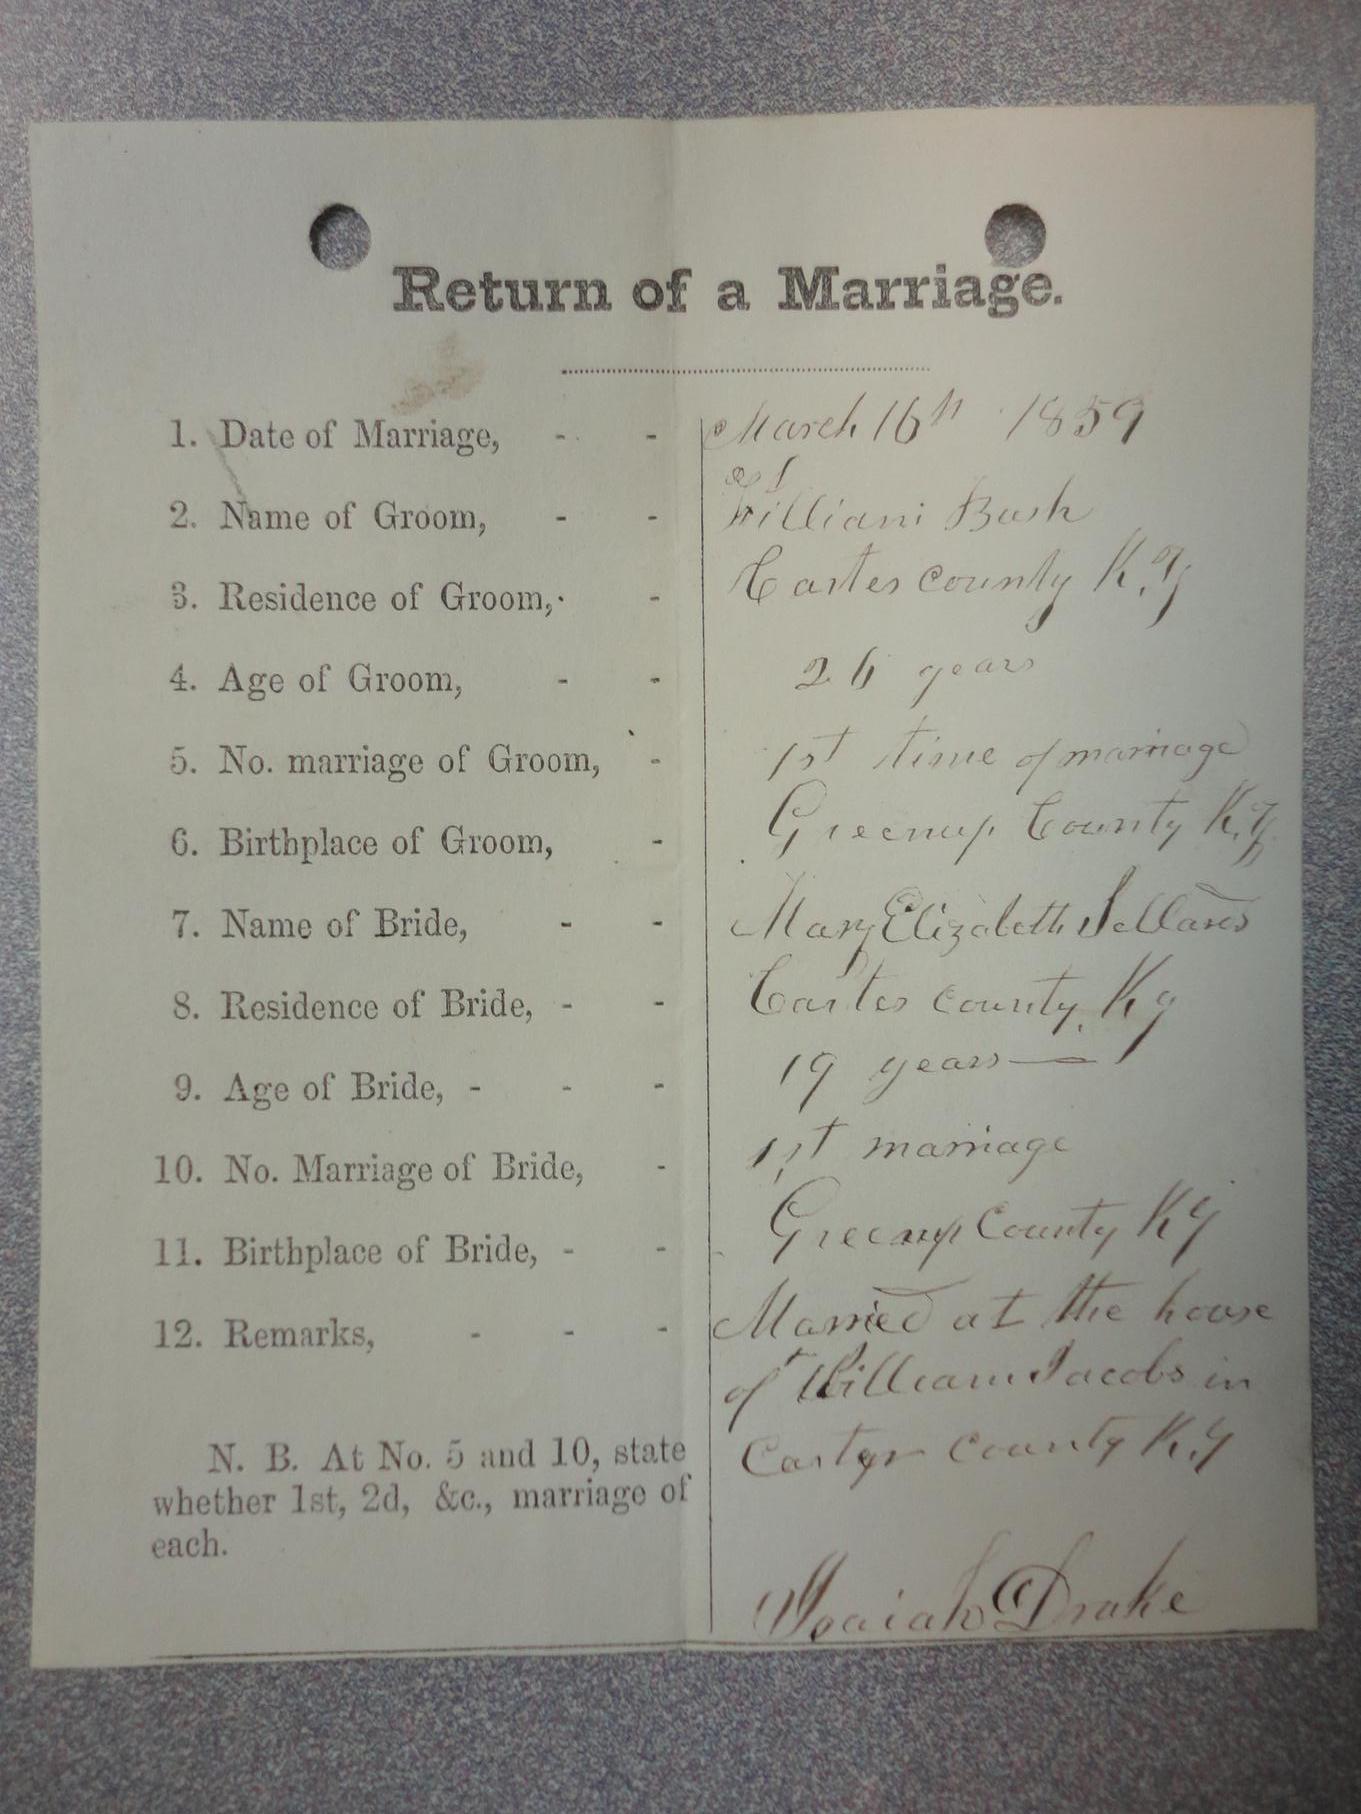 Return of a Marriage.
1. Date of Marriage, - - March 16th 1859
2. Name of Groom, - - William Bush
3. Residence of Groom, - Carter county K.y
4. Age of Groom, - - 26 years
5. No. marriage of Groom, - 1st time of marriage
6. Birthplace of Groom, - Greenup County K.y
7. Name of Bride, - - Mary Elizabeth Sellards
8. Residence of Bride, - - Carter county, Ky
9. Age of Bride, - - - 19 years
10. No. Marriage of Bride, - 1st marriage
11. Birthplace of Bride, - - Greenup County Ky
12. Remarks, - - - Married at the house
of William Jacobs in
Carter county K.y
N. B. At No. 5 and 10, state
whether 1st, 2d, &c., marriage of
each.
Isaiah Drake